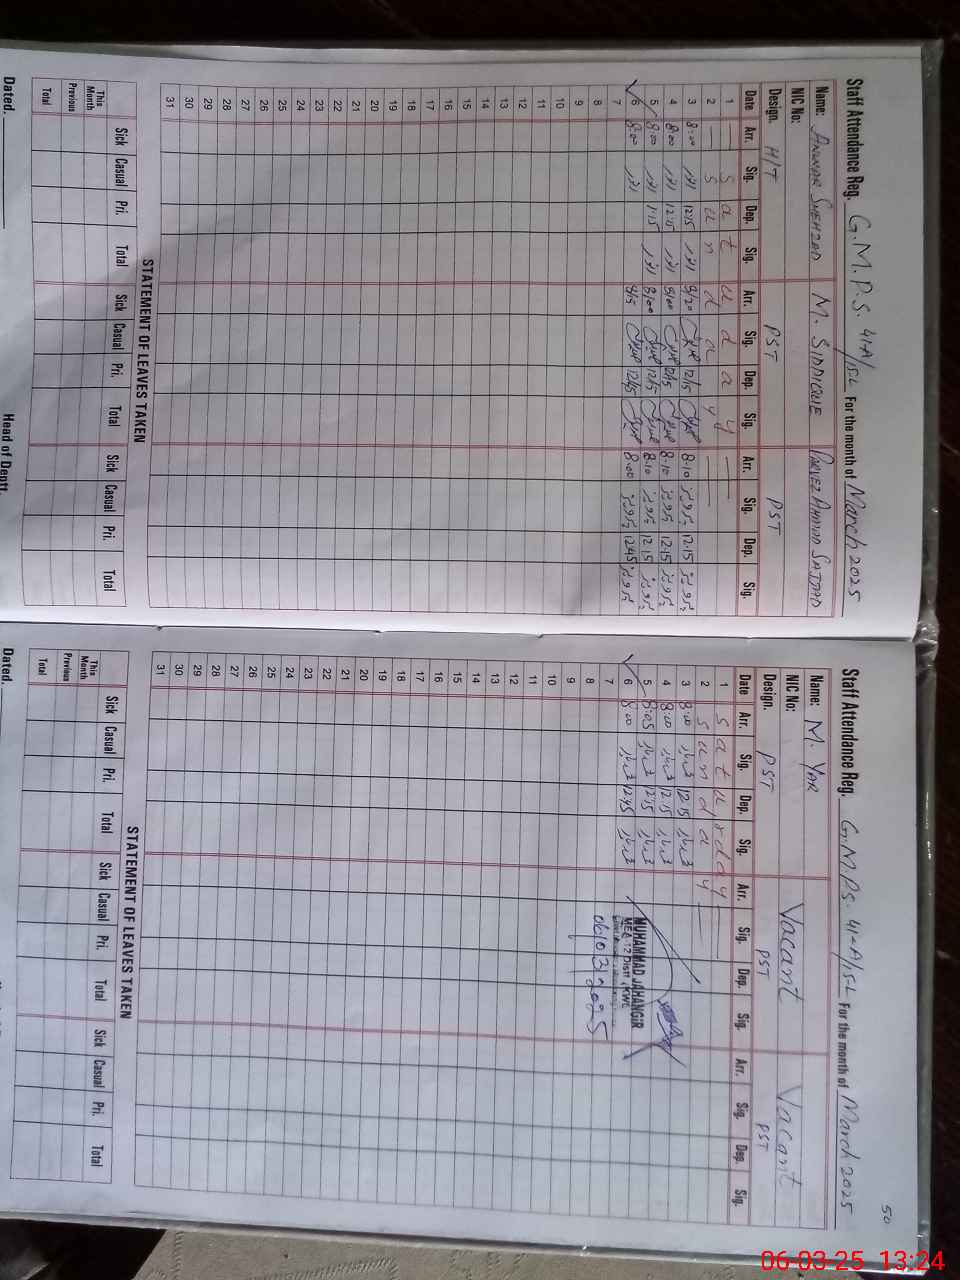 50
Staff Attendance Reg. G.M.P.S. 41-A/15-L For the month of March 2025
Name: ANWAR SHEHZAD M. SIDDIQUE PARVEZ AHMAD SAJJAD
NIC No:
Design. H/T PST PST
Date Arr. Sig. Dep. Sig. Arr. Sig. Dep. Sig. Arr. Sig. Dep. Sig.
1 — S a t u d a y —
2 — S u n d a y —
3 8:00 12:15 8/20 12/15 8.10 12.15
4 8:00 12:15 8/00 12/15 8.10 12.15
5 8:00 1:15 8/00 12/15 8.10 12.15
6 8:00 8/15 12/45 8.00 12.45
7
8
9
10
11
12
13
14
15
16
17
18
19
20
21
22
23
24
25
26
27
28
29
30
31
STATEMENT OF LEAVES TAKEN
Sick Casual Pri. Total Sick Casual Pri. Total Sick Casual Pri. Total
This Month
Previous
Total
Dated. Head of Deptt.
Staff Attendance Reg. G.M.P.S. 41-A/15-L For the month of March 2025
Name: M. YAR Vacant Vacant
NIC No:
Design. PST PST PST
Date Arr. Sig. Dep. Sig. Arr. Sig. Dep. Sig. Arr. Sig. Dep. Sig.
1 S a t u r d a y —
2 S u n d a y —
3 8:00 12:15
4 8:00 12:15
5 8:05 12:15
6 8:00 12:45
7
8
9
10
11
12
13
14
15
16
17
18
19
20
21
22
23
24
25
26
27
28
29
30
31
MUHAMMAD JAHANGIR
MEA-17 Distt. KWL
06/03/2025
STATEMENT OF LEAVES TAKEN
Sick Casual Pri. Total Sick Casual Pri. Total Sick Casual Pri. Total
This Month
Previous
Total
Dated.
06-03-25 13:24